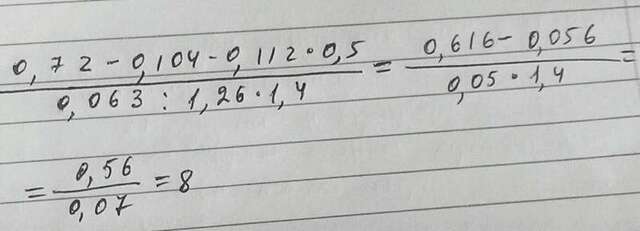 (0,72 - 0,104 - 0,112 • 0,5) / (0,063 : 1,26 • 1,4) = (0,616 - 0,056) / (0,05 • 1,4) =
= 0,56 / 0,07 = 8